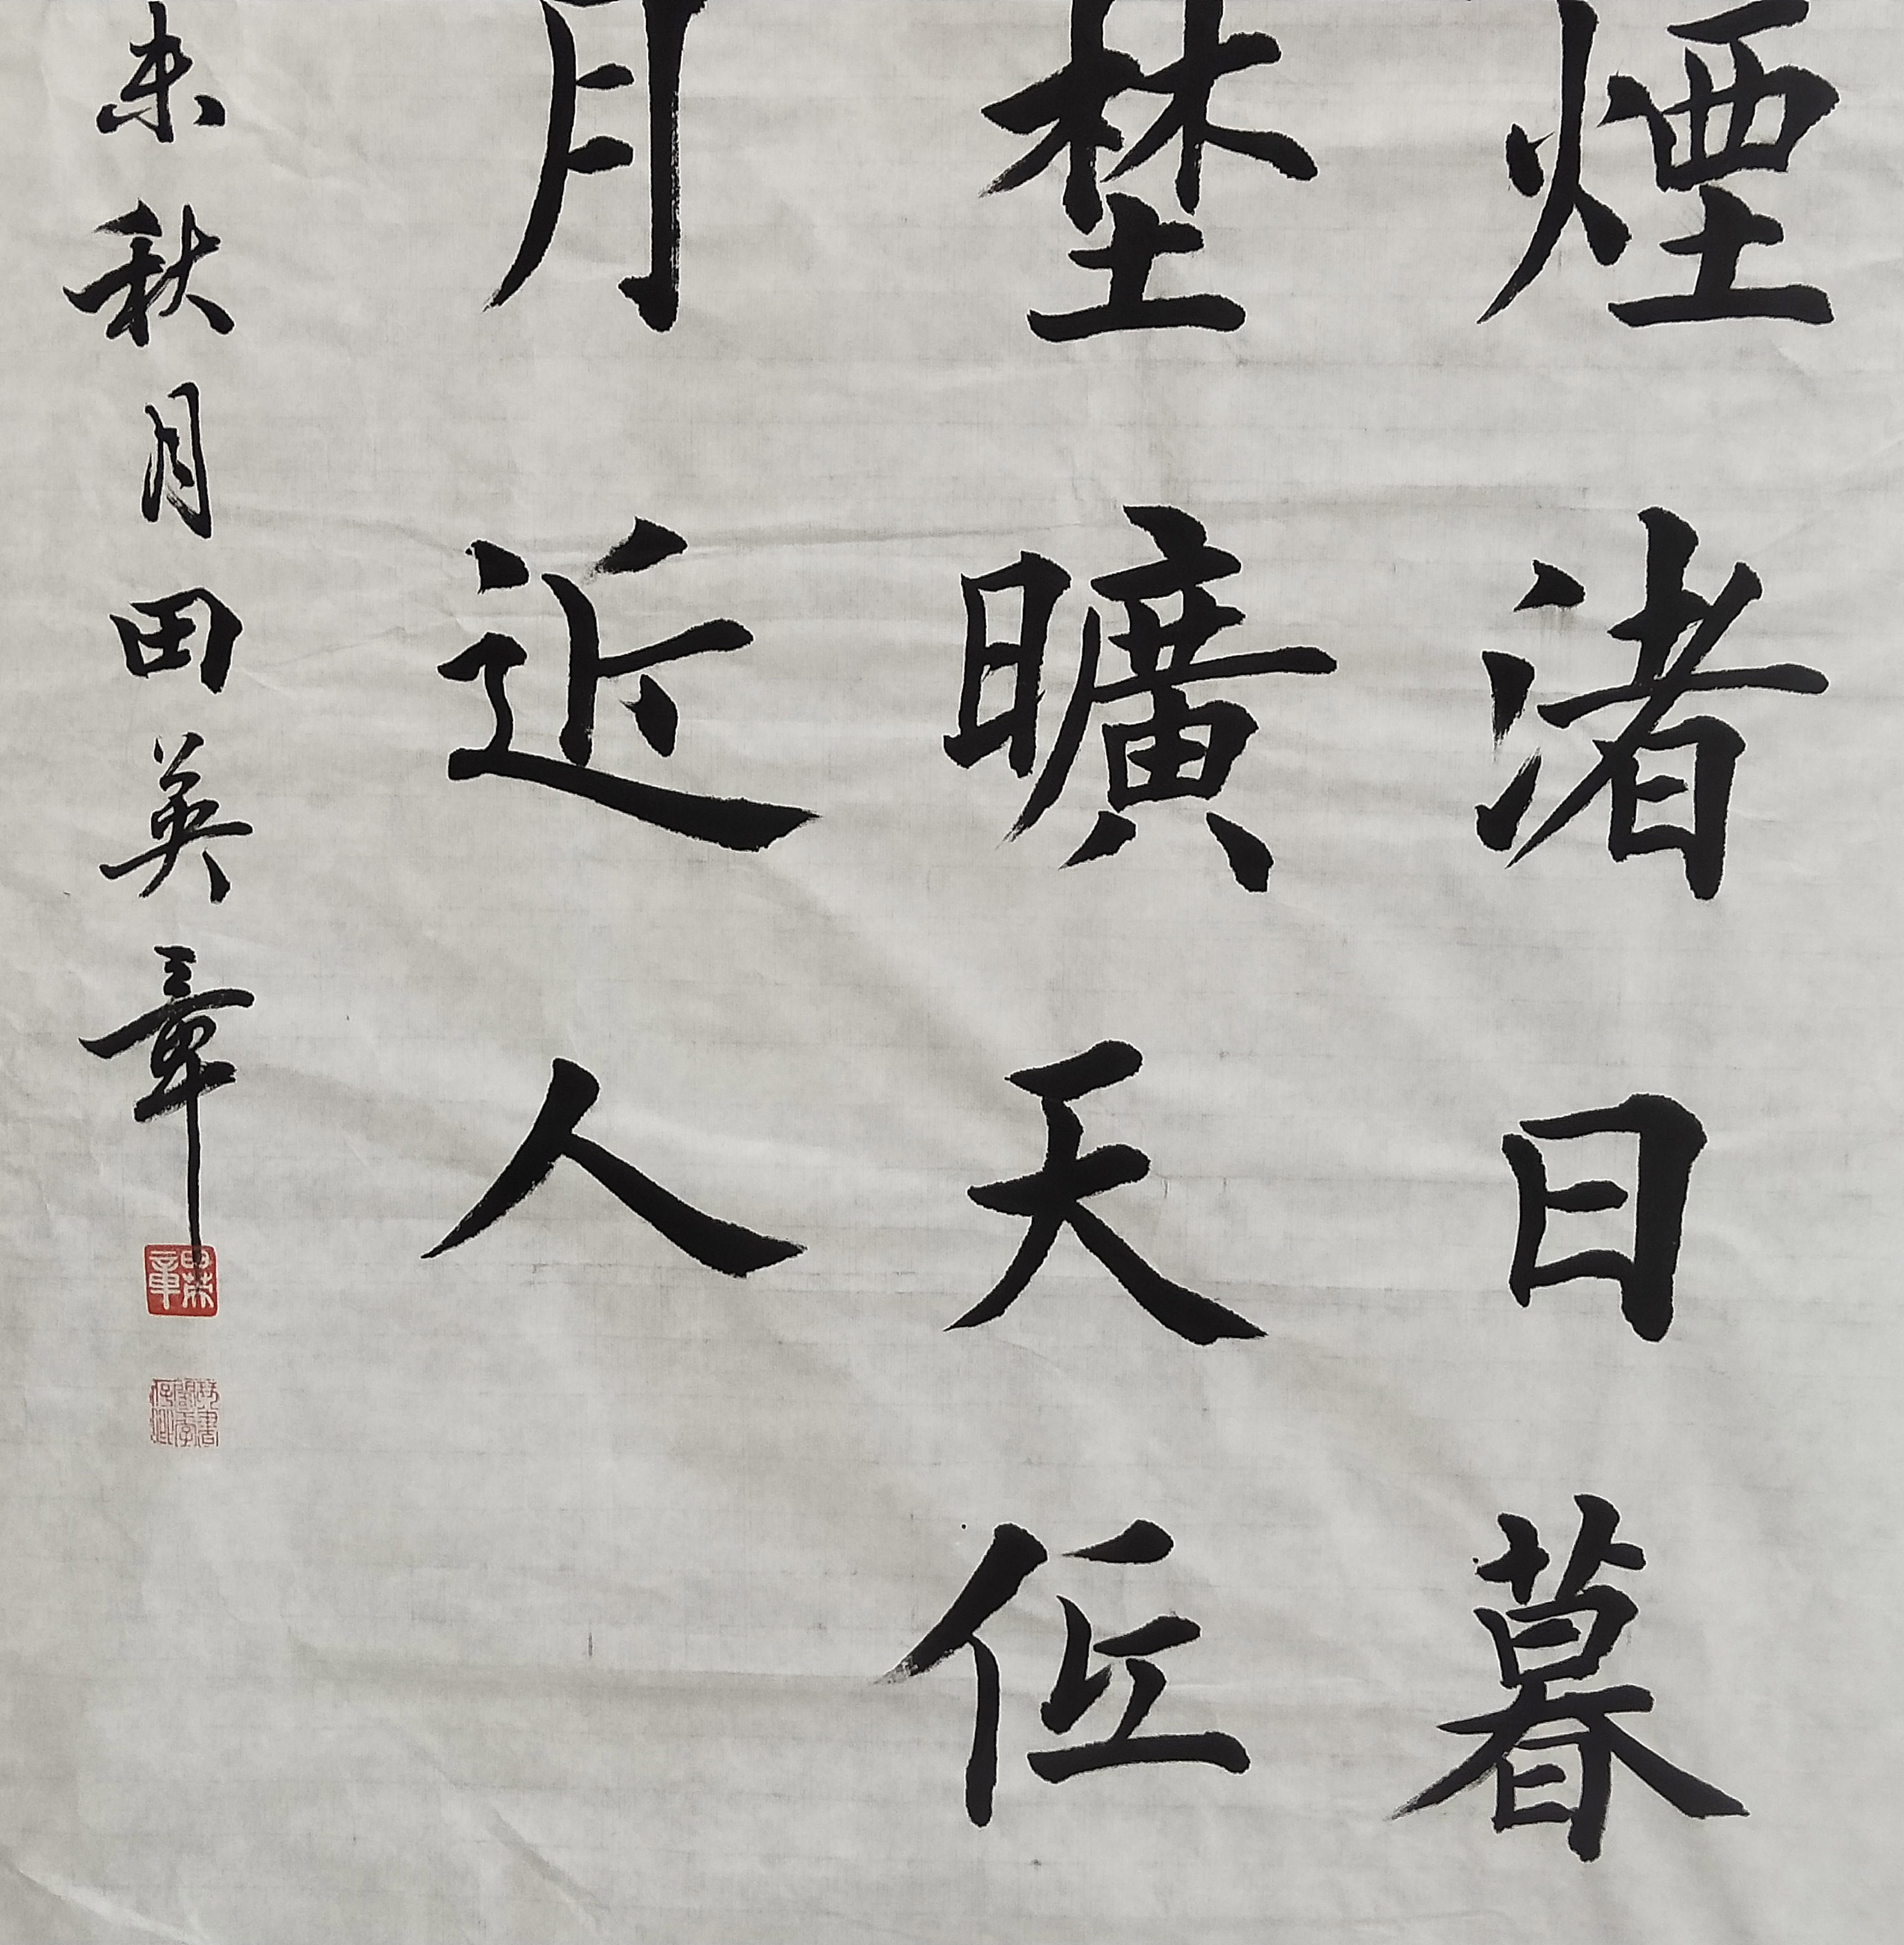 煙渚日暮
埜曠天低
月近人
未秋月田英章
田英章